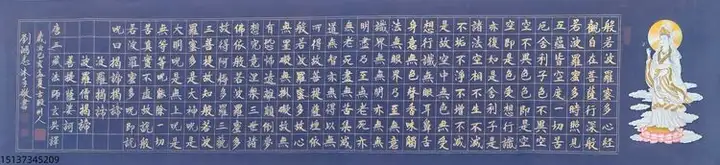 般若波羅蜜多心經
觀自在菩薩行深般
若波羅蜜多時照見
五蘊皆空度一切苦
厄舍利子色不異空
空不異色色即是空
空即是色受想行識
亦復如是舍利子是
諸法空相不生不滅
不垢不淨不增不減
是故空中無色無受
想行識無眼耳鼻舌
身意無色聲香味觸
法無眼界乃至無意
識界無無明亦無無
明盡乃至無老死亦
無老死盡無苦集滅
道無智亦無得以無
所得故菩提薩埵依
般若波羅蜜多故心
無罣礙無罣礙故無
有恐怖遠離顛倒夢
想究竟涅槃三世諸
佛依般若波羅蜜多
故得阿耨多羅三藐
三菩提故知般若波
羅蜜多是大神咒是
大明咒是無上咒是
無等等咒能除一切
苦真實不虛故說般
若波羅蜜多咒即說
咒曰揭諦揭諦
波羅揭諦
波羅僧揭諦
菩提薩婆訶
唐三藏法師玄奘譯
沐手敬書
15137345209